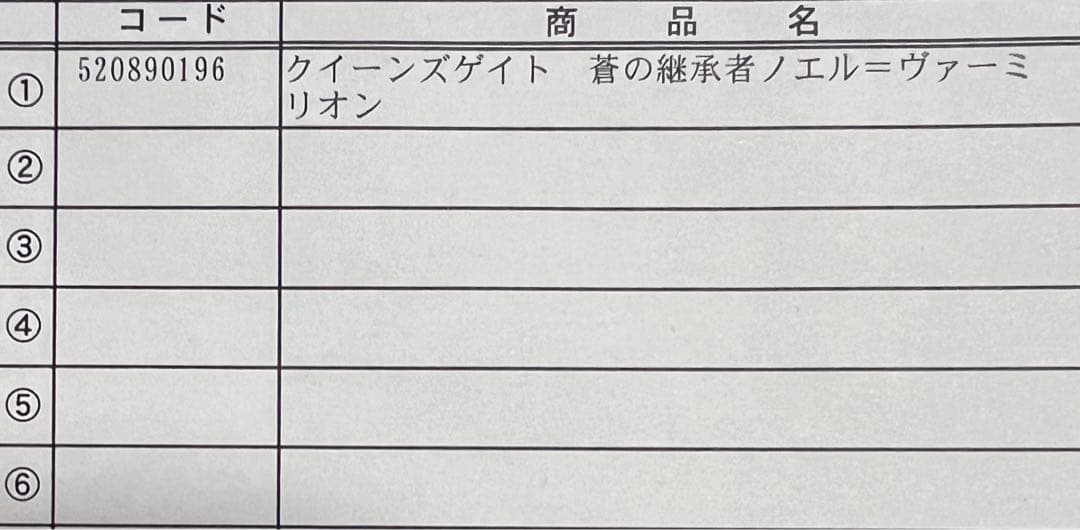 コード 商品名
① 520890196 クイーンズゲイト 蒼の継承者ノエル＝ヴァーミ
リオン
②
③
④
⑤
⑥